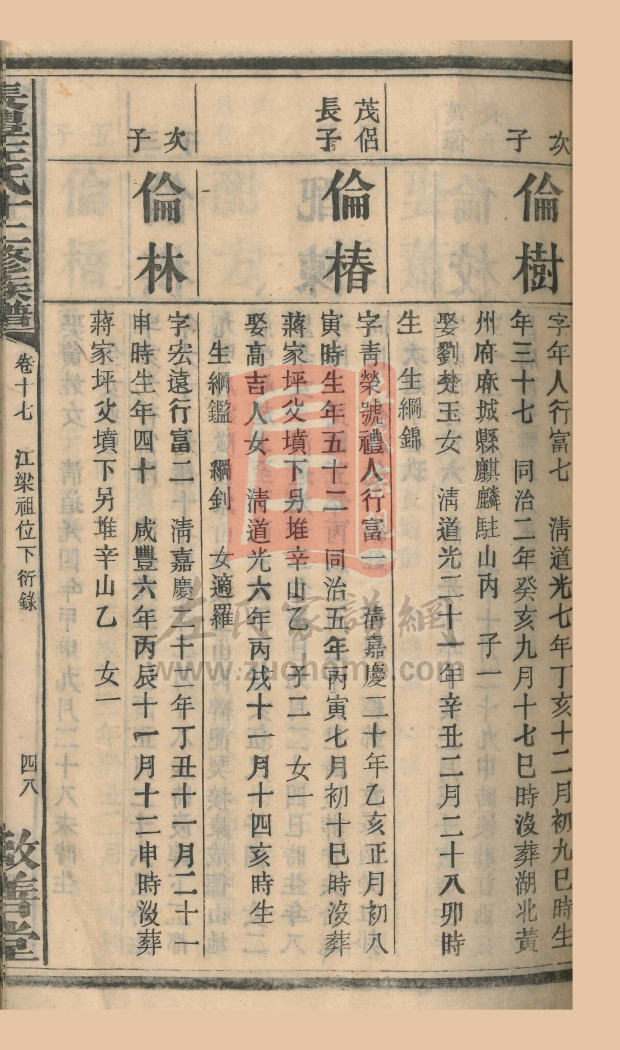 次
子
倫樹
字年人行富七　清道光七年丁亥十二月初九巳時生
年三十七　同治二年癸亥九月十七巳時沒葬湖北黃
州府麻城縣麒麟駐山內　子一
娶劉楚玉女　清道光二十一年辛丑二月二十八卯時
生　生綱錦
茂侶
長子
倫椿
字青榮號禮人行富一　清嘉慶二十年乙亥正月初八
寅時生年五十二　同治五年丙寅七月初十巳時沒葬
蔣家坪父墳下另堆辛山乙　子二　女一
娶高吉人女　清道光六年丙戌十一月十四亥時生
生綱鑑　綱釗　女適羅
次
子
倫林
字宏遠行富二　清嘉慶二十二年丁丑十一月二十一
申時生年四十　咸豐六年丙辰十一月十二申時沒葬
蔣家坪父墳下另堆辛山乙　女一
長澧左氏十二修族譜
卷十七　江梁祖位下衍錄
四八
敬善堂
左氏家譜網
www.zuohome.com